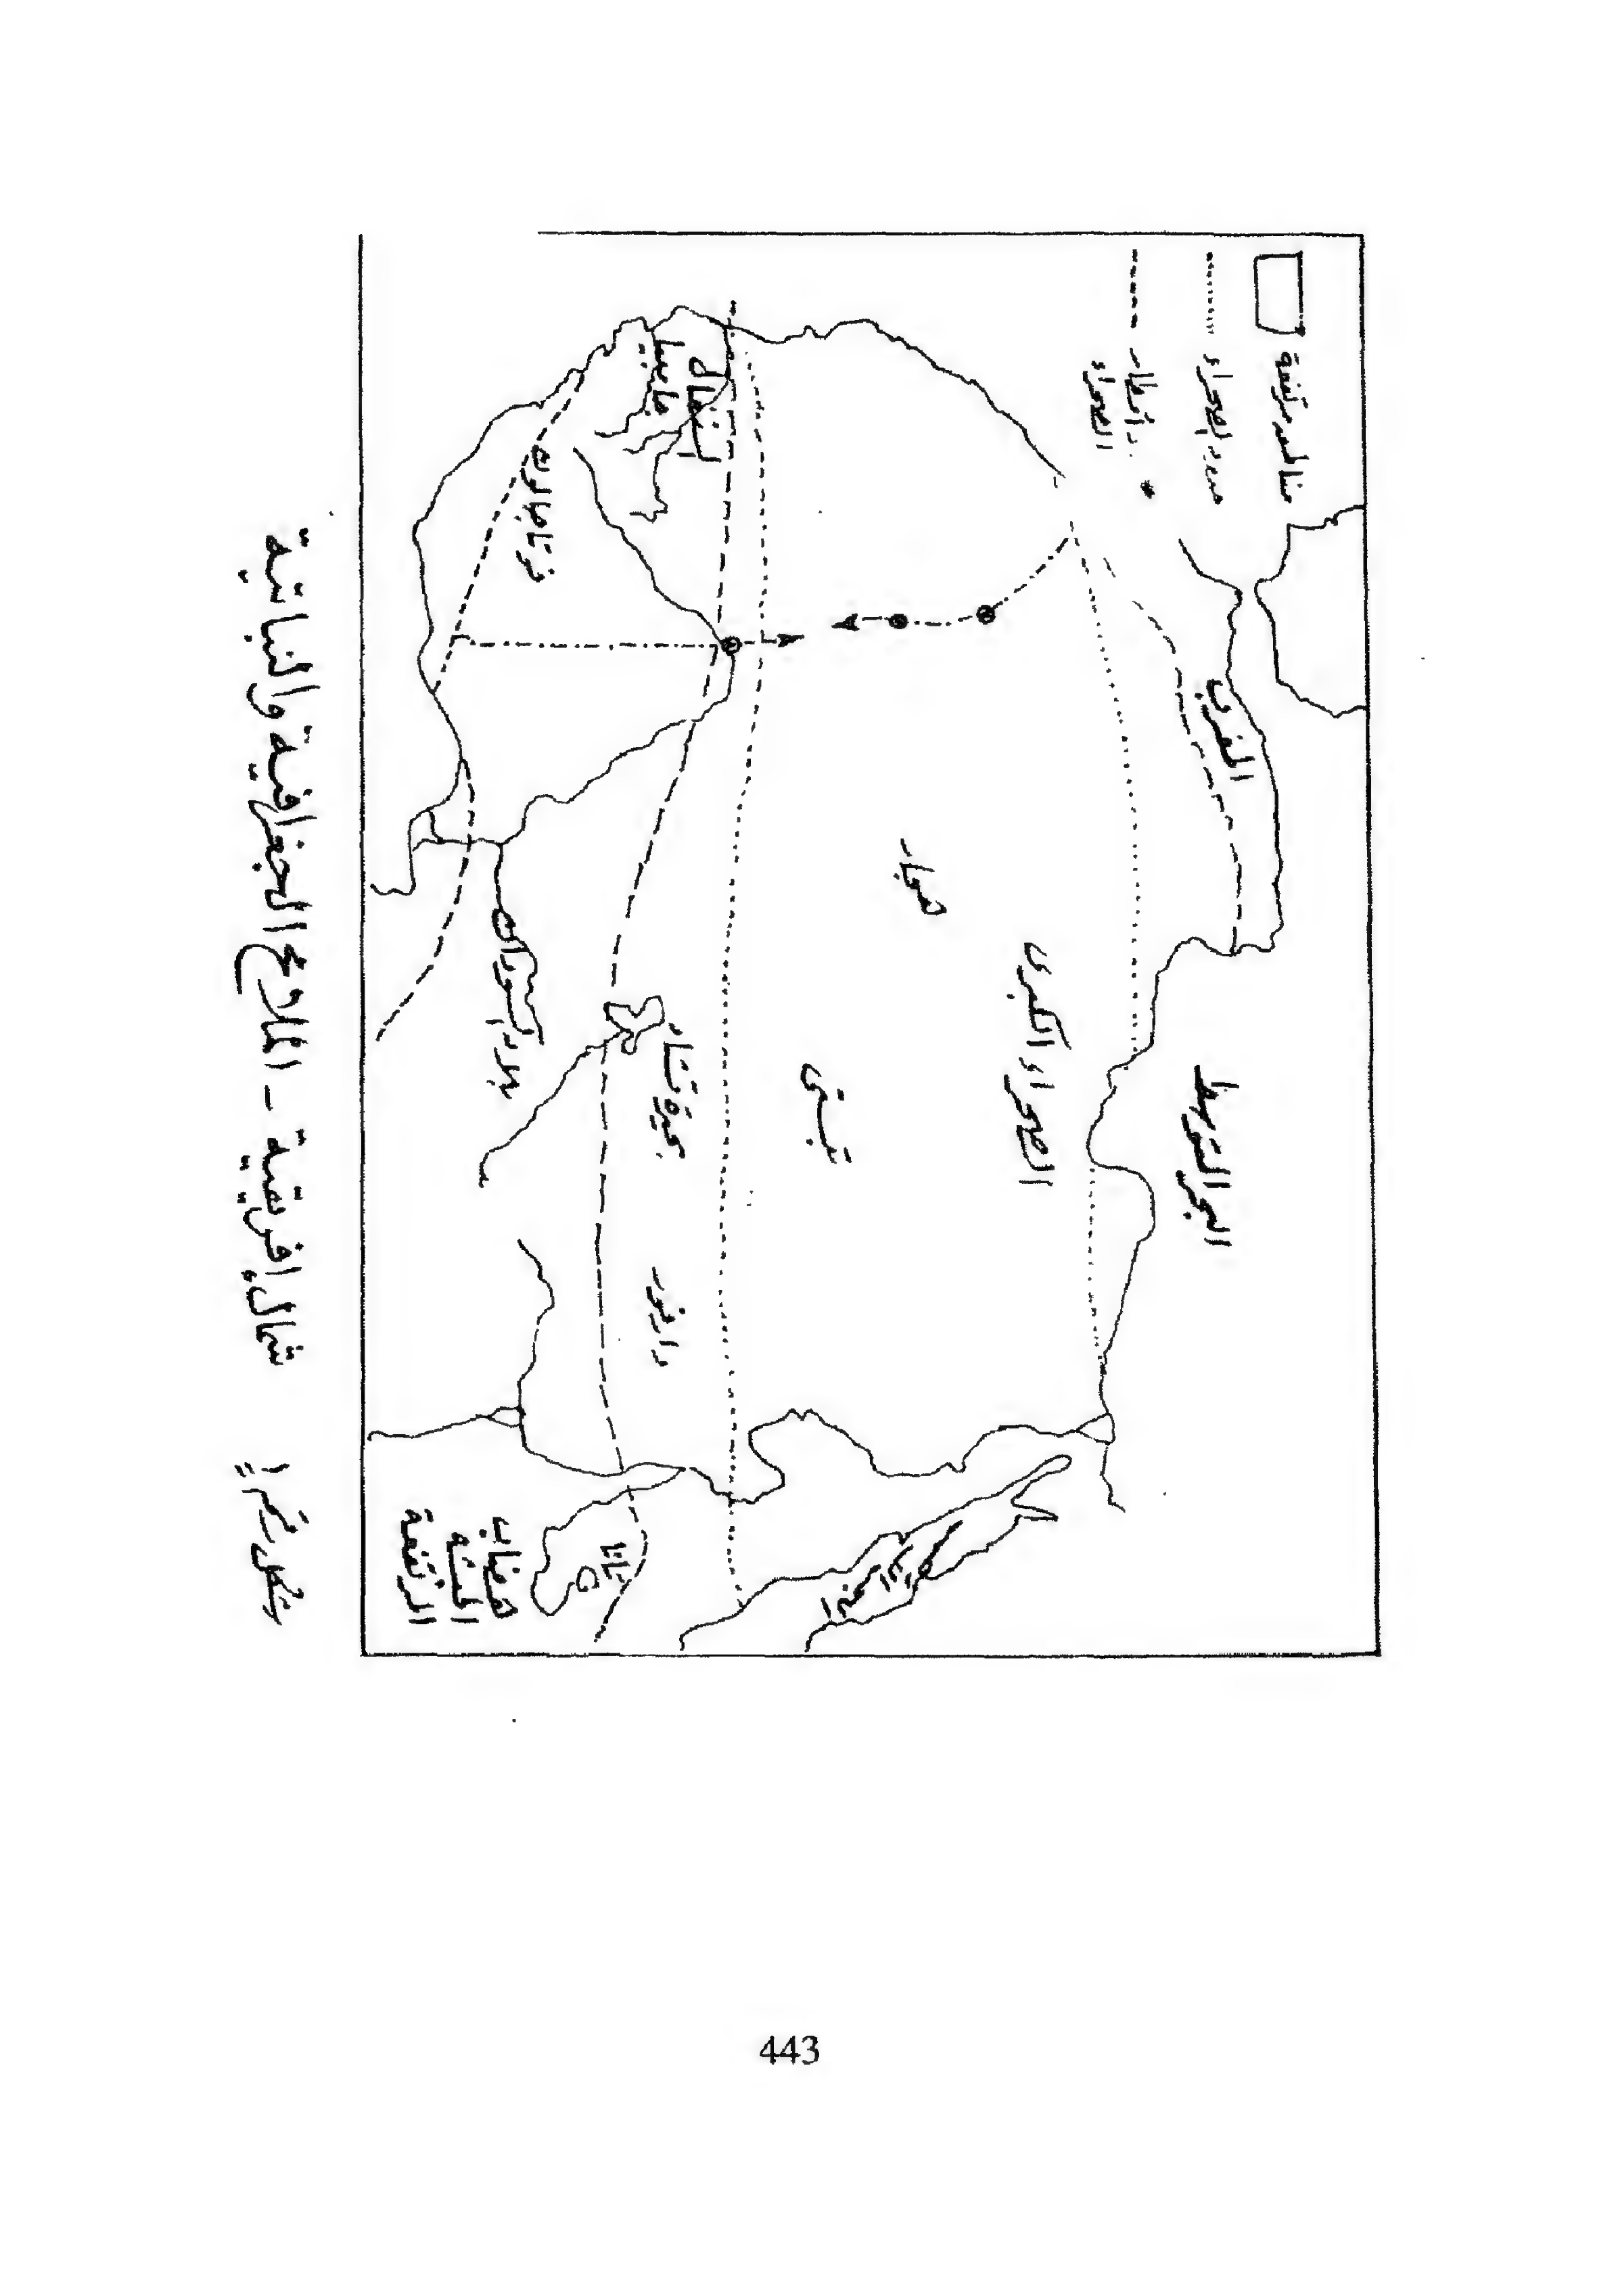 مناطق مرتفعة
حدود الصحراء
الصحراء
المغرب
البحر المتوسط
الصحراء الكبرى
هجار
تبستى
السنغال
جامبيا
فوتا جالون
بحيرة تشاد
دارفور
بلاد السودان
تانا
هضاب
الحبشة
المرتفعة
شكل رقم ١ شمال إفريقية - الملامح الجغرافية والنباتية
443